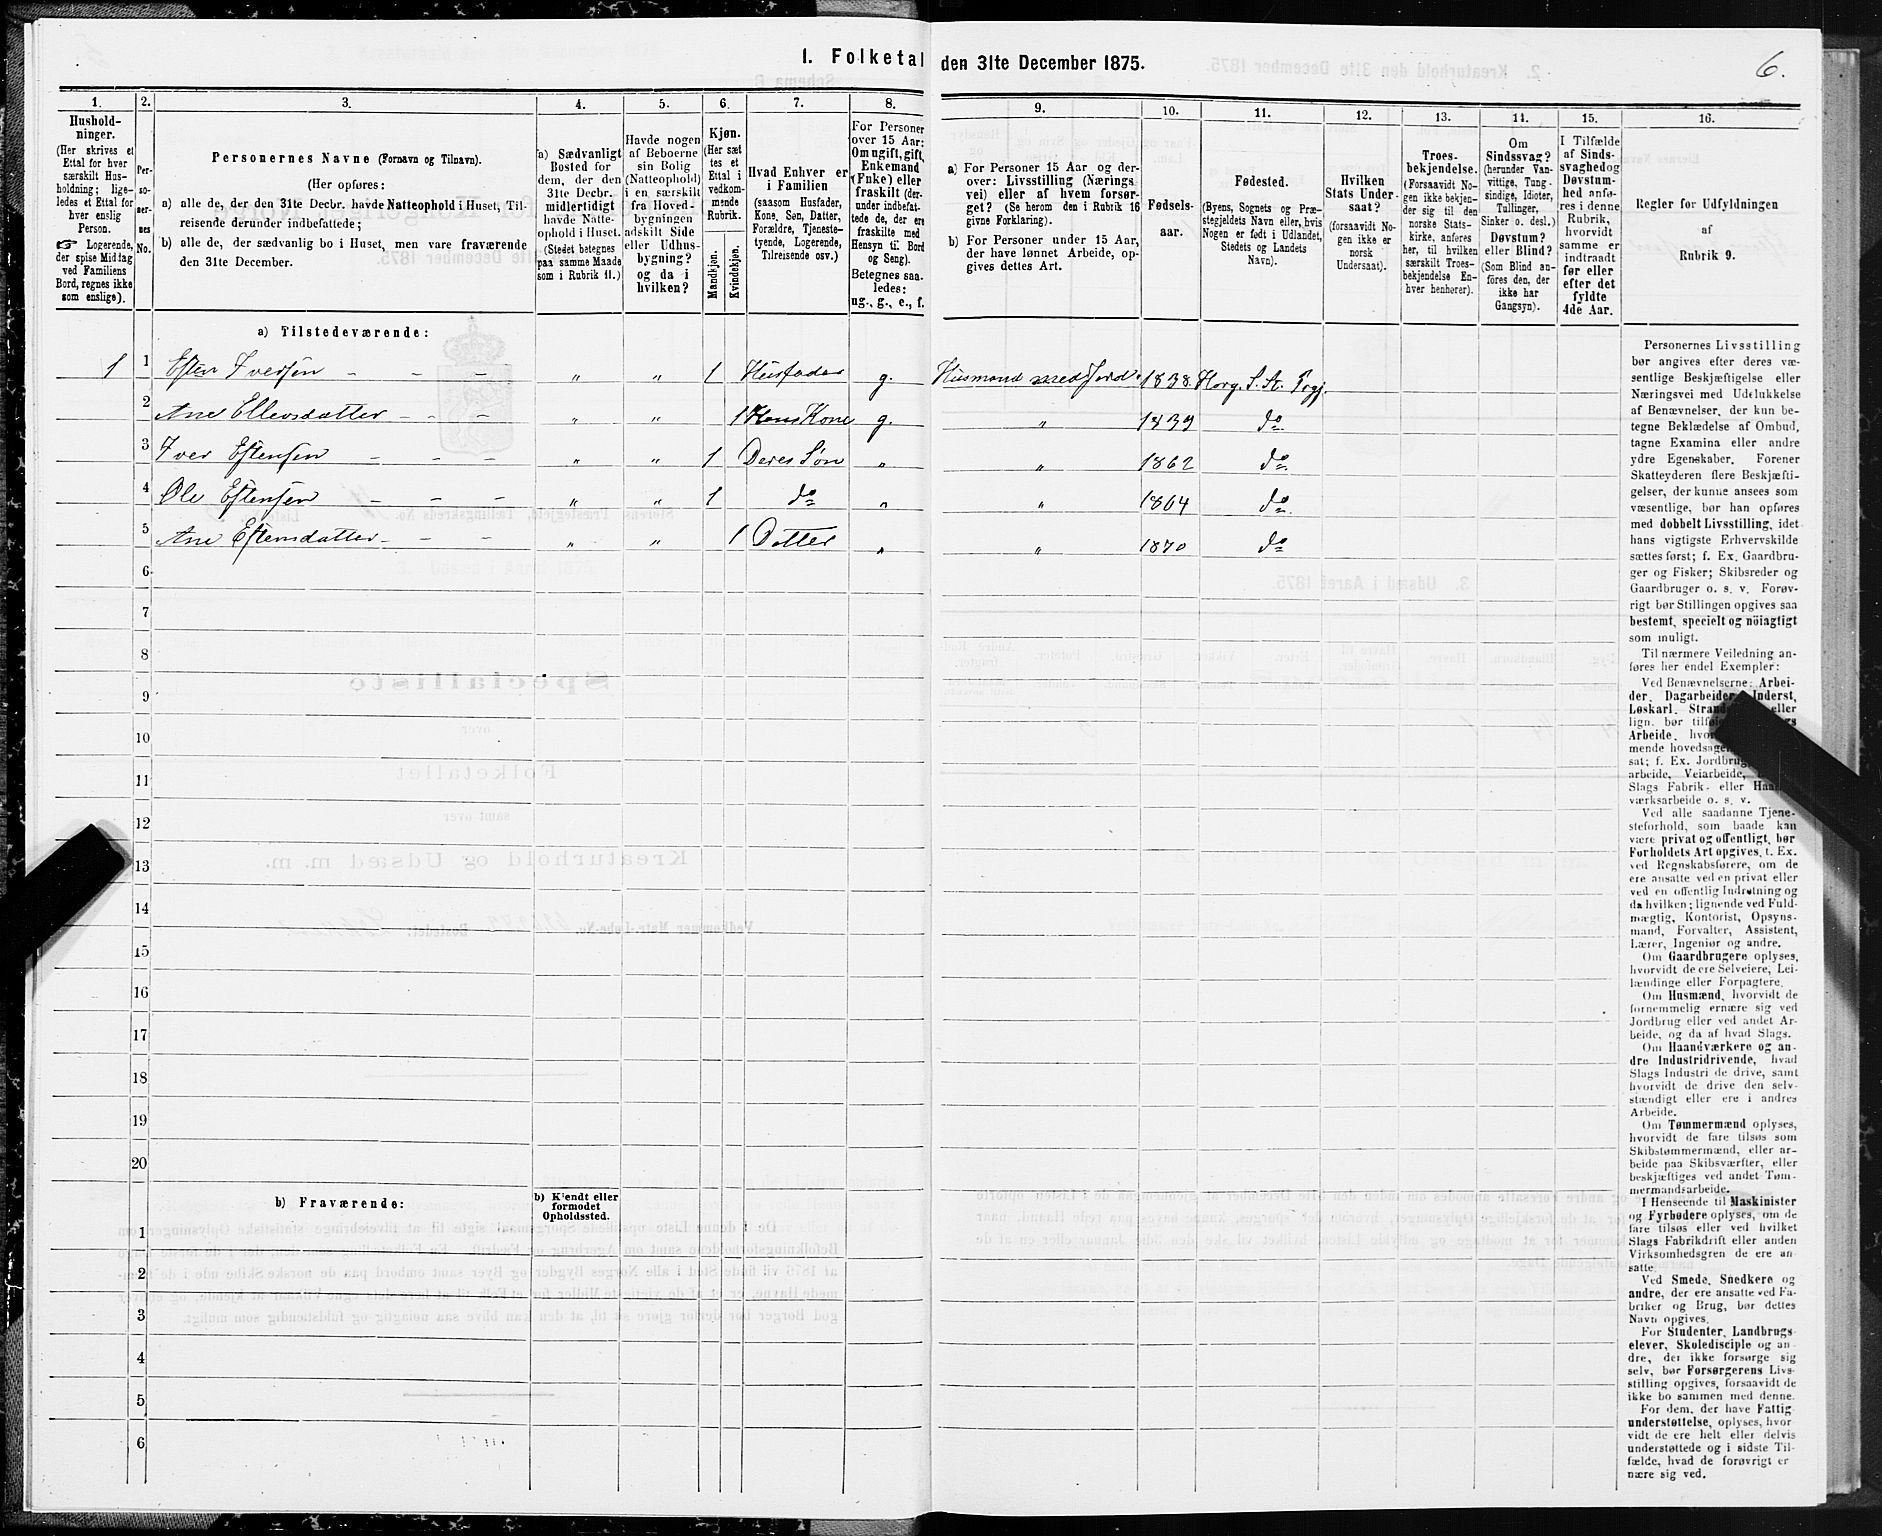 1. Folketal den 31te December 1875.
6.
1.
Hushold-
ninger.
(Her skrives et
Ettal for hver
særskilt Hus-
holdning; lige-
ledes et Ettal for
hver enslig
Person.
☞ Logerende,
der spise Middag
ved Familiens
Bord, regnes ikke
som enslige).
2.
Per-
so-
ner-
nes
No.
3.
Personernes Navne (Fornavn og Tilnavn).
(Her opføres:
a) alle de, der den 31te Decbr. havde Natteophold i Huset, Til-
reisende derunder indbefattede;
b) alle de, der sædvanlig bo i Huset, men vare fraværende
den 31te December.
4.
a) Sædvanligt
Bosted for
dem, der den
31te Decbr.
midlertidigt
havde Natte-
ophold i Huset.
(Stedet betegnes
paa samme Maade
som i Rubrik 11.)
5.
Havde nogen
af Beboerne
sin Bolig
(Natteophold)
i en særskilt
fra Hoved-
bygningen
adskilt Side
eller Udhus-
bygning?
og da i
hvilken?
6.
Kjøn.
(Her sæt
tes et
Ettal i
vedkom-
mende
Rubrik.
Mandkjøn.
Kvindekjøn.
7.
Hvad Enhver er
i Familien
(saasom Husfader,
Kone, Søn, Datter,
Forældre, Tjeneste-
tyende, Logerende,
Tilreisende osv.)
8.
For Personer
over 15 Aar:
Om ugift, gift,
Enkemand
(Enke) eller
fraskilt (der-
under indbefat-
tede de, der ere
fraskilte med
Hensyn til Bord
og Seng).
Betegnes saa-
ledes:
ug., g., e., f.
9.
a) For Personer 15 Aar og der-
over: Livsstilling (Nærings
vei) eller af hvem forsør-
get? (Se herom den i Rubrik 16
givne Forklaring).
b) For Personer under 15 Aar,
der have lønnet Arbeide, op-
gives dettes Art.
10.
Fødsels-
aar.
11.
Fødested.
(Byens, Sognets og Præ-
stegjeldets Navn eller, hvis
Nogen er født i Udlandet,
Stedets og Landets
Navn).
12.
Hvilken
Stats Under-
saat?
(forsaavidt No-
gen ikke er
norsk
Undersaat).
13.
Troes-
bekjendelse.
(Forsaavidt No-
gen ikke bekjen-
der sig til den
norske Stats-
kirke, anføres
her, til hvilken
særskilt Troes-
bekjendelse En-
hver henhører).
14.
Om
Sindssvag?
(herunder Van-
vittige, Tung-
sindige, Idioter,
Tullinger,
Sinker o. desl.)
Døvstum?
eller Blind?
(Som Blind an-
føres den, der
ikke har
Gangsyn).
15.
I Tilfælde
af Sinds-
svaghed og
Døvstum-
hed anfø-
res i denne
Rubrik,
hvorvidt
samme er
indtraadt
før eller
efter det
fyldte
4de Aar.
16.
Regler for Udfyldningen
af
Rubrik 9.
a) Tilstedeværende:
1 1 Esten Iversen - - - " " 1 Husfader g. Husmand med Jord 1838. Horg. S. St. Prgj.
2 Ane Ellevsdatter - - - " " 1 Hans Kone g. " 1839 do
3 Iver Estensen - - - " " 1 Deres Søn " " 1862 do
4 Ole Estensen - - - " " 1 do " " 1864 do
5 Ane Estensdatter - - - " " 1 Datter " " 1870 do
6
7
8
9
10
11
12
13
14
15
16
17
18
19
20
b) Fraværende:
b) Kjendt eller
formodet
Opholdssted.
1
2
3
4
5
6
Personernes Livsstilling
bør angives efter deres væ-
sentlige Beskjæftigelse eller
Næringsvei med Udelukkelse
af Benævnelser, der kun be-
tegne Beklædelse af Ombud,
tagne Examina eller andre
ydre Egenskaber. Forener
Skatteyderen flere Beskjæfti-
gelser, der kunne ansees som
væsentlige, bør han opføres
med dobbelt Livsstilling, idet
hans vigtigste Erhvervskilde
sættes først; f. Ex. Gaardbru-
ger og Fisker; Skibsreder og
Gaardbruger o. s. v. Forøv-
rigt bør Stillingen opgives saa
bestemt, specielt og nöiagtigt
som muligt.
Til nærmere Veiledning an-
føres her endel Exempler:
Ved Benævnelserne: Arbei-
der, Dagarbeider, Inderst,
Løskarl, eller
lign. bør
Arbeide,
mende
sat; f. Ex.
arbeide, Veiarbeide,
Slags Fabrik- eller
værksarbeide o. s. v.
Ved alle saadanne Tjene-
steforhold, som baade kan
være privat og offentligt, bør
Forholdets Art opgives, t. Ex.
ved Regnskabsførere, om de
ere ansatte ved en privat eller
ved en offentlig Indretning og
da hvilken; lignende ved Fuld-
mægtig, Kontorist, Opsyns-
mand, Forvalter, Assistent,
Lærer, Ingeniør og andre.
Om Gaardbrugere oplyses,
hvorvidt de ere Selveiere, Lei-
lændinge eller Forpagtere.
Om Husmænd, hvorvidt de
fornemmelig ernære sig ved
Jordbrug eller ved andet Ar-
beide, og da af hvad Slags.
Om Haandværkere og an-
dre Industridrivende, hvad
Slags Industri de drive, samt
hvorvidt de drive den selv-
stændigt eller ere i andres
Arbeide.
Om Tømmermænd oplyses,
hvorvidt de fare tilsøs som
Skibstømmermænd, eller ar-
beide paa Skibsværfter, eller
beskjæftiges ved andet Tøm-
mermandsarbeide.
I Henseende til Maskinister
og Fyrbødere oplyses, om de
fare tilsøs eller ved hvilket
Slags Fabrikdrift eller anden
Virksomhedsgren de ere an-
satte.
Ved Smede, Snedkere og
andre, der ere ansatte ved Fa-
briker og Brug, bør dettes
Navn opgives.
For Studenter, Landbrugs-
elever, Skoledisciple og an-
dre, der ikke forsørge sig
selv, bør Forsørgerens Livs-
stilling opgives, forsaavidt de
ikke bo sammen med denne.
For dem, der have Fattig-
understøttelse, oplyses, hvor-
vidt de ere helt eller delvis
understøttede og i sidste Til-
fælde, hvad de forøvrigt er
nære sig ved.